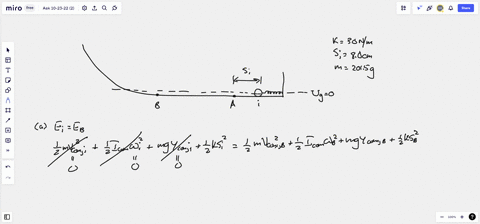 miro free Ask 10-23-22 (2)
Share
K = 30 N/m
Si = 8.0cm
m = 2015g
Si
Ug=0
B A i
(a) Ei = EB
½ m V²com,i + ½ Icom ωi² + mg Ycom,i + ½ K Si² = ½ m V²com,B + ½ Icom ωB² + mg Ycom,B + ½ K SB²
0 0 0